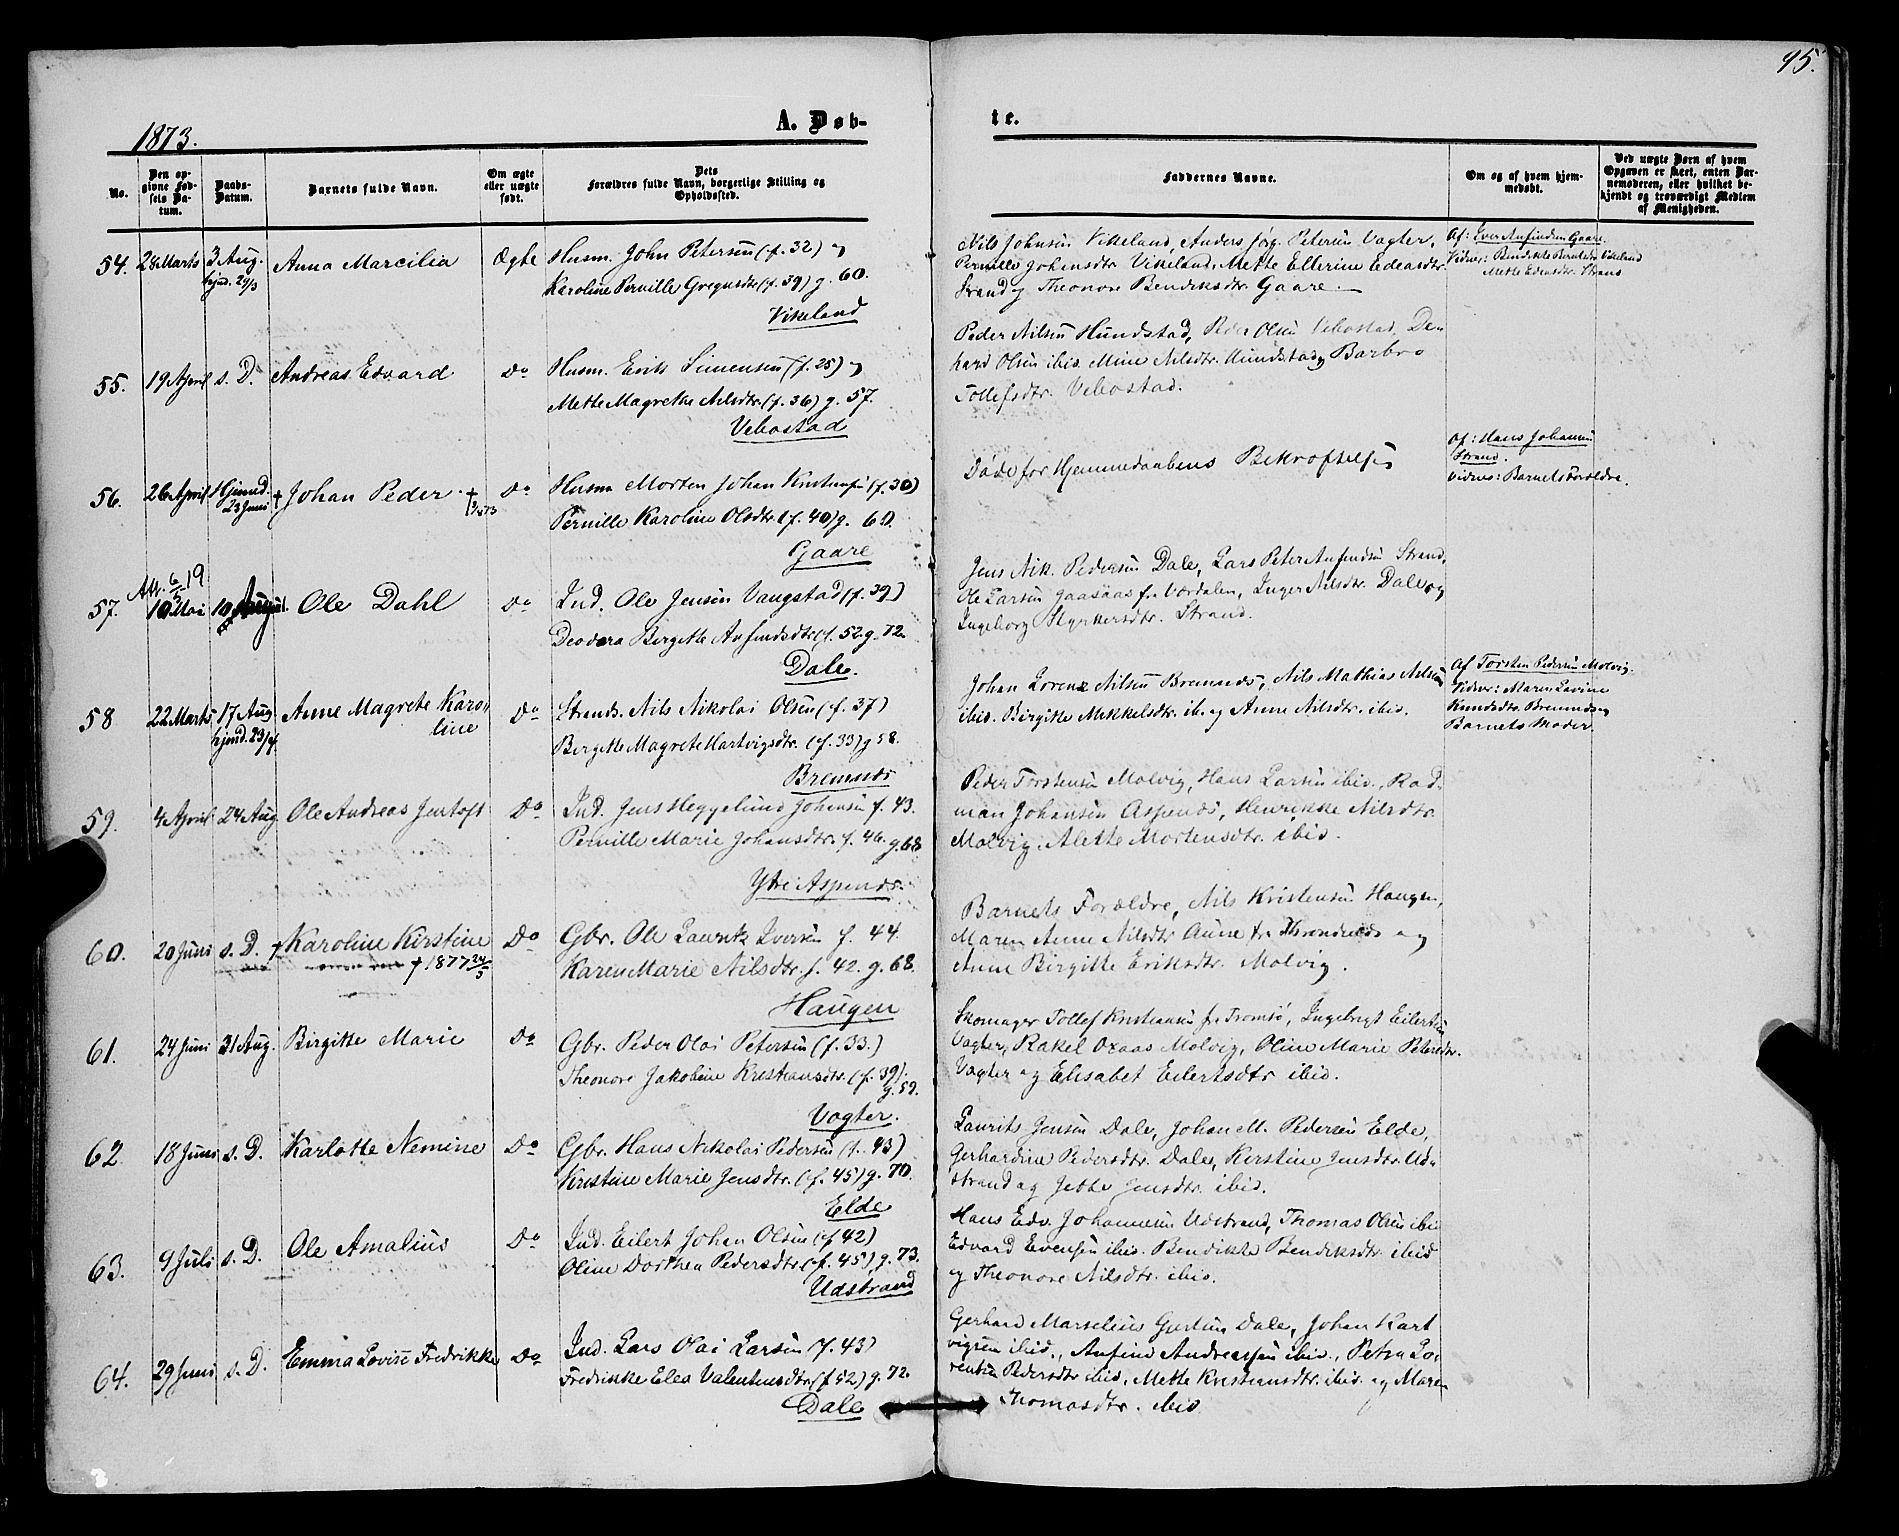 95.
1873.
A. Døb-
te.
No.
Den opgivne Fødsels Datum.
Daabs-Datum.
Barnets fulde Navn.
Om ægte eller uægte født.
Dets Forældres fulde Navn, borgerlige Stilling og Opholdssted.
Faddernes Navne.
Om og af hvem hjemmedøbt.
Ved uægte Børn af hvem Opgaven er skeet, enten Barnemoderen, eller hvilket bekjendt og troværdigt Medlem af Menigheden.
54. 28 Marts 3 Aug. Anna Marcilia Ægte Husm. John Petersen (f. 32) og
hjmd. 29/3 Karoline Pernille Gregusdtr. (f. 39) g. 60.
Vikeland
Nils Johnsen Vikeland, Anders Jørg. Petersen Vagter,
Pernille Johensdtr Vikeland, Mette Ellerine Edeasdtr.
Strand og Theonore Bendiksdtr. Gaare.
Af: Iver Anfindsen Gaare.
Vidner: Bendikte Vikeland
Mette Edeasdtr. Strand
55. 19 April s. D. Andreas Edvard Do Husm. Erik Simensen (f. 25) og
Mette Magrethe Nilsdtr. (f. 36) g. 57.
Vebostad
Peder Nilsen Hundstad, Peder Olsen Vebostad, De-
hard Olsen ibid. Mine Nilsdtr. Hundstad og Barbro
Tollefsdtr. Vebostad.
56. 26 April Hjemmd. 23 Juni † Johan Peder † Do Husm Morten Johan Kristensen (f. 30)
Pernille Karoline Olsdtr. (f. 40) g. 60.
Gaare
Døde før Hjemmedaabens Bekræftelse
Af: Hans Johansen
Strand.
Vidner: Barnets Forældre.
Att. 6/5 19
57. 10 Mai 10 August. Ole Dahl Do Ind. Ole Jensen Vangstad (f. 39)
Deodora Birgitte Anfindsdtr (f. 52 g. 72.
Dale.
Jens Nik. Pedersen Dale, Lars Peter Anfindsen Strand,
Ole Larsen Gaasaas fr. Værdalen, Inger Nilsdtr. Dale og
Ingeborg Styrkersdtr. Strand.
58 22 Marts 17 Aug Anne Magrete Karo- Do Strands. Nils Nikolai Olsen (f. 37)
hjmd. 23/4 line Birgitte Magrete Hartvigsdtr. (f. 33) g 58.
Bremnes
Johan Lorenz Nilsen Bremnes, Nils Mathias Nilsen
ibid. Birgitte Mikkelsdtr. ib. og Anne Nilsdtr. ibid.
Af Torsten Pedersen Molvig.
Vidner: Maren Lavine
Knudsdtr. Bremnes og
Barnets Moder.
59. 4 April 24 Aug Ole Andreas Jentoft Do Ind. Jens Heggelund Johensen f. 43.
Pernille Marie Johansdtr. f. 46. g. 68
Ytre Aspenes.
Peder Torstensen Molvig, Hans Larsen ibid., Rad-
man Johansen Aspenes, Henrikke Nilsdtr.
Molvig, Alette Mortensdtr. ibid.
60. 20 Juni s. D. † Karoline Kirstine Do Gbr. Ole Lauritz Iversen f. 44.
† 1877 24/5 Karen Marie Nilsdtr. f. 42. g. 68.
Haugen
Barnets Forældre, Nils Kristensen Haugen,
Maren Anne Nilsdtr Aune fr. Throndenes og
Anne Birgitte Eriksdtr. Molvig.
61. 24 Juni 31 Aug. Birgitte Marie Do Gbr. Peder Olai Petersen (f. 33.)
Theonore Jakobine Kristiansdtr. (f. 39).
g. 59.
Vagter.
Skomager Tollef Kristiansen fr. Tromsø, Ingebrigt Eilertsen
Vagter, Rakel Oxaas Molvig, Oline Marie Petersdtr.
Vagter og Elisabet Eilertsdtr ibid.
62. 18 Juni s. D. Karlotte Nemine Do Gbr. Hans Nikolai Pedersen (f. 43)
Kristine Marie Jensdtr. (f. 45) g. 70.
Elde
Laurits Jensen Dale, Johan M. Pedersen Elde,
Gerhardine Pedersdtr. Dale, Kirstine Jensdtr. Ud-
strand og Jette Jensdtr. ibid.
63. 9 Juli s. D. Ole Amalius Do Ind. Eilert Johan Olsen (f 42)
Oline Dorthea Pedersdtr. (f. 45), g. 73.
Udstrand
Hans Edv. Johannesen Udstrand, Thomas Olsen ibid
Edvard Evensen ibid. Bendikte Bendiksdtr. ibid
og Theonore Nilsdtr. ibid.
64. 29 Juni s. D. Emma Lovise Fredrikke Do Ind. Lars Olai Larsen (f. 43)
Fredrikke Elea Valentinsdtr. (f 52) g. 72.
Dale
Gerhard Marselius Dale, Johan Hart
vigsen ibid., Anfind Andreassen ibid., Petra Lo-
rentse Pedersdtr ibid, Mette Kristiansdtr. ibid. og Maren
Thomasdtr. ibid.